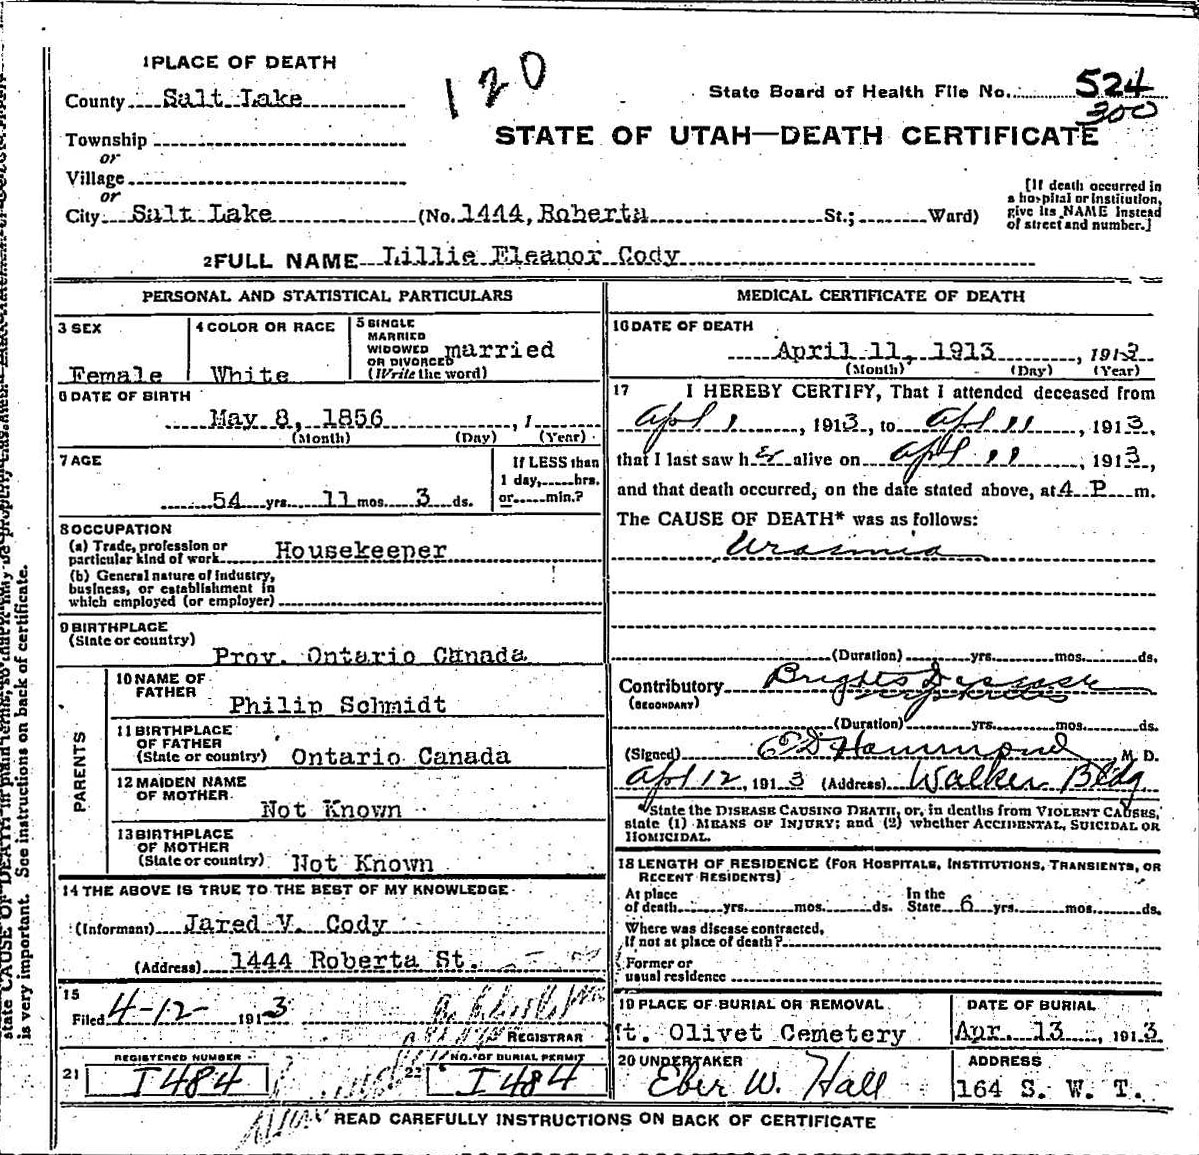 120
1 PLACE OF DEATH
County Salt Lake
State Board of Health File No. 524
300
STATE OF UTAH—DEATH CERTIFICATE
Township
or
Village
or
City Salt Lake (No. 1444, Roberta St.; Ward)
[If death occurred in
a hospital or institution,
give its NAME instead
of street and number.]
2 FULL NAME Lillie Eleanor Cody
PERSONAL AND STATISTICAL PARTICULARS
3 SEX
Female
4 COLOR OR RACE
White
5 SINGLE
MARRIED
WIDOWED married
OR DIVORCED
(Write the word)
6 DATE OF BIRTH
May 8, 1856 , 1
(Month) (Day) (Year)
7 AGE
54 yrs. 11 mos. 3 ds.
If LESS than
1 day, hrs.
or min.?
8 OCCUPATION
(a) Trade, profession or
particular kind of work Housekeeper
(b) General nature of industry,
business, or establishment in
which employed (or employer)
9 BIRTHPLACE
(State or country)
Prov. Ontario Canada
PARENTS
10 NAME OF
FATHER
Philip Schmidt
11 BIRTHPLACE
OF FATHER
(State or country) Ontario Canada
12 MAIDEN NAME
OF MOTHER
Not Known
13 BIRTHPLACE
OF MOTHER
(State or country) Not Known
14 THE ABOVE IS TRUE TO THE BEST OF MY KNOWLEDGE
(Informant) Jared V. Cody
(Address) 1444 Roberta St.
15
Filed 4-12- 1913
REGISTRAR
REGISTERED NUMBER
21 I484
NO. OF BURIAL PERMIT
22 I484
MEDICAL CERTIFICATE OF DEATH
16 DATE OF DEATH
April 11, 1913 , 1913
(Month) (Day) (Year)
17 I HEREBY CERTIFY, That I attended deceased from
Apl 1 , 1913, to Apl 11 , 1913,
that I last saw her alive on Apl 11 , 1913,
and that death occurred, on the date stated above, at 4 P m.
The CAUSE OF DEATH* was as follows:
Uraemia
(Duration) yrs. mos. ds.
Contributory Brights Disease
(SECONDARY)
(Duration) yrs. mos. ds.
(Signed) E D Hammond M. D.
Apl 12, 1913 (Address) Walker Bldg
*State the DISEASE CAUSING DEATH, or, in deaths from VIOLENT CAUSES,
state (1) MEANS OF INJURY; and (2) whether ACCIDENTAL, SUICIDAL OR
HOMICIDAL.
18 LENGTH OF RESIDENCE (FOR HOSPITALS, INSTITUTIONS, TRANSIENTS, OR
RECENT RESIDENTS)
At place In the
of death yrs. mos. ds. State 6 yrs. mos. ds.
Where was disease contracted,
If not at place of death?
Former or
usual residence
19 PLACE OF BURIAL OR REMOVAL
t. Olivet Cemetery
DATE OF BURIAL
Apr. 13 , 1913
20 UNDERTAKER
Eber W. Hall
ADDRESS
164 S. W. T.
READ CAREFULLY INSTRUCTIONS ON BACK OF CERTIFICATE
state CAUSE OF DEATH in plain terms, so that it may be properly
is very important. See instructions on back of certificate.